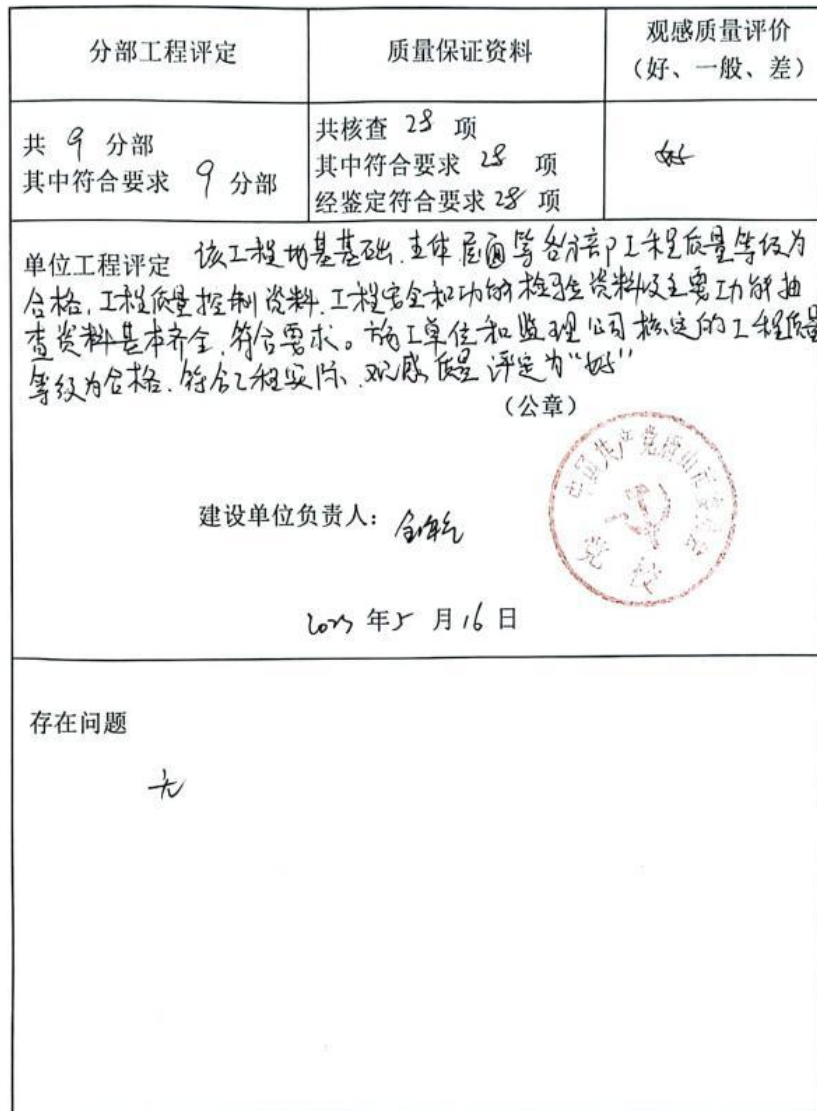 分部工程评定
质量保证资料
观感质量评价
（好、一般、差）
共 9 分部
其中符合要求 9 分部
共核查 28 项
其中符合要求 28 项
经鉴定符合要求 28 项
好
单位工程评定 该工程地基基础、主体、屋面等各分部工程质量等级为
合格，工程质量控制资料、工程安全和功能检验资料及主要功能抽
查资料基本齐全，符合要求。施工单位和监理公司核定的工程质量
等级为合格，符合工程实际，观感质量评定为“好”
（公章）
中国共产党唐山市委员会
党校
建设单位负责人：
2023 年 5 月 16 日
存在问题
无